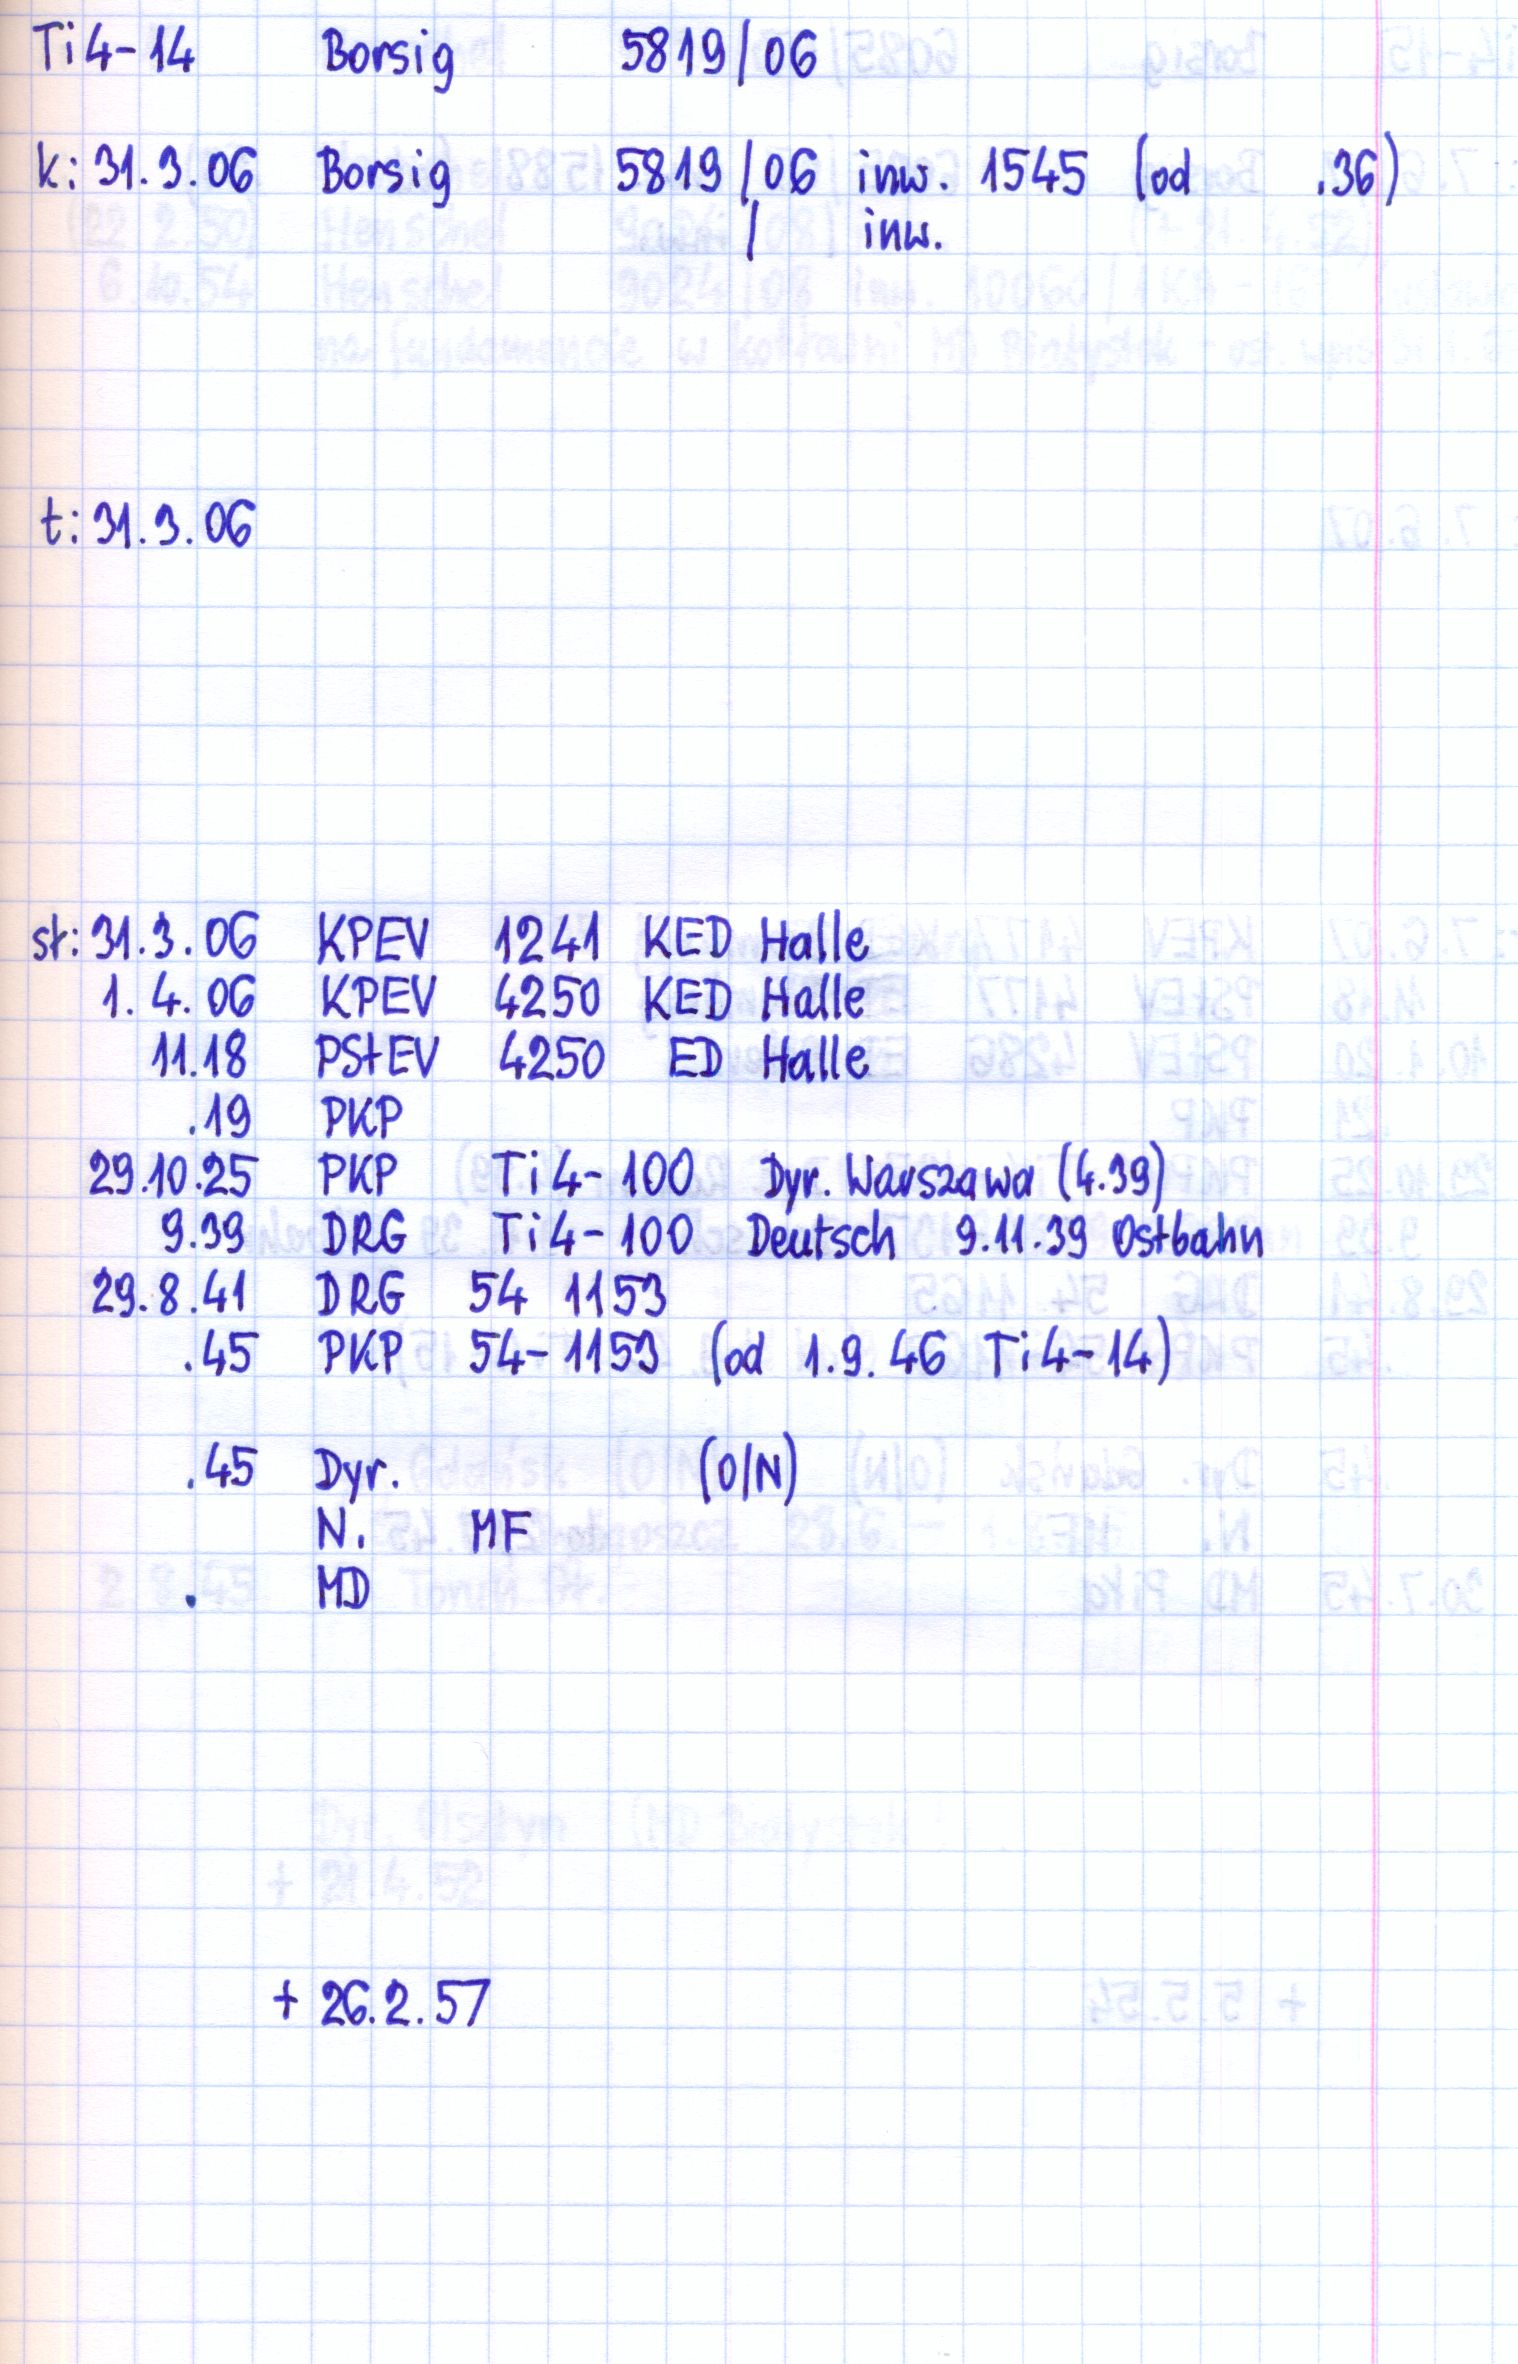 Ti4-14 Borsig 5819/06
k: 31.3.06 Borsig 5819/06 inw. 1545 (od .36)
/ inw.
t: 31.3.06
st: 31.3.06 KPEV 1241 KED Halle
1.4.06 KPEV 4250 KED Halle
11.18 PStEV 4250 ED Halle
.19 PKP
29.10.25 PKP Ti4-100 Dyr. Warszawa (4.39)
9.39 DRG Ti4-100 Deutsch 9.11.39 Ostbahn
29.8.41 DRG 54 1153
.45 PKP 54-1153 (od 1.9.46 Ti4-14)
.45 Dyr. (O/N)
N. MF
. MD
+ 26.2.57